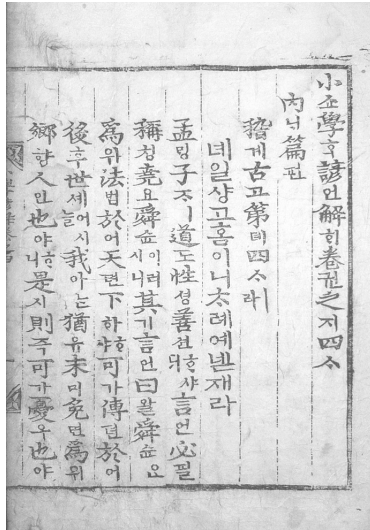 小쇼學ᄒᆞᆨ諺언解ᄒᆡ卷권之지四ᄉᆞ
內ᄂᆡ篇편
稽계古고第뎨四ᄉᆞㅣ라
녜일샹고홈이니ᄎᆞ례예넫재라
孟ᄆᆡᆼ子ᄌᆞㅣ道도性셩善션ᄒᆞ샤ᄃᆡ言언必필
稱칭堯요舜슌이러시니其기言언曰왈舜슌은
爲위法법於어天텬下하ᄒᆞ샤可가傳뎐於어
後후世셰어시ᄂᆞᆯ我아ᄂᆞᆫ猶유未미免면爲위
鄕향人인也야ᄒᆞ니是시則즉可가憂우也야